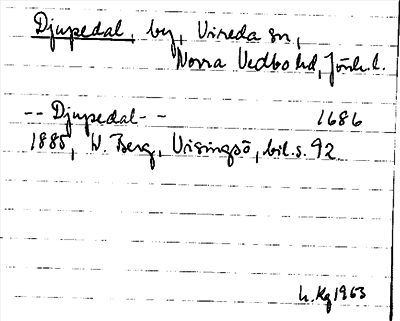 Djupedal, by, Vireda sn,
Norra Vedbo hd, Jönk. l.
-- Djupedal - - 1686
1885, W. Berg, Visingsö, bil. s. 92
h. Kg 1963